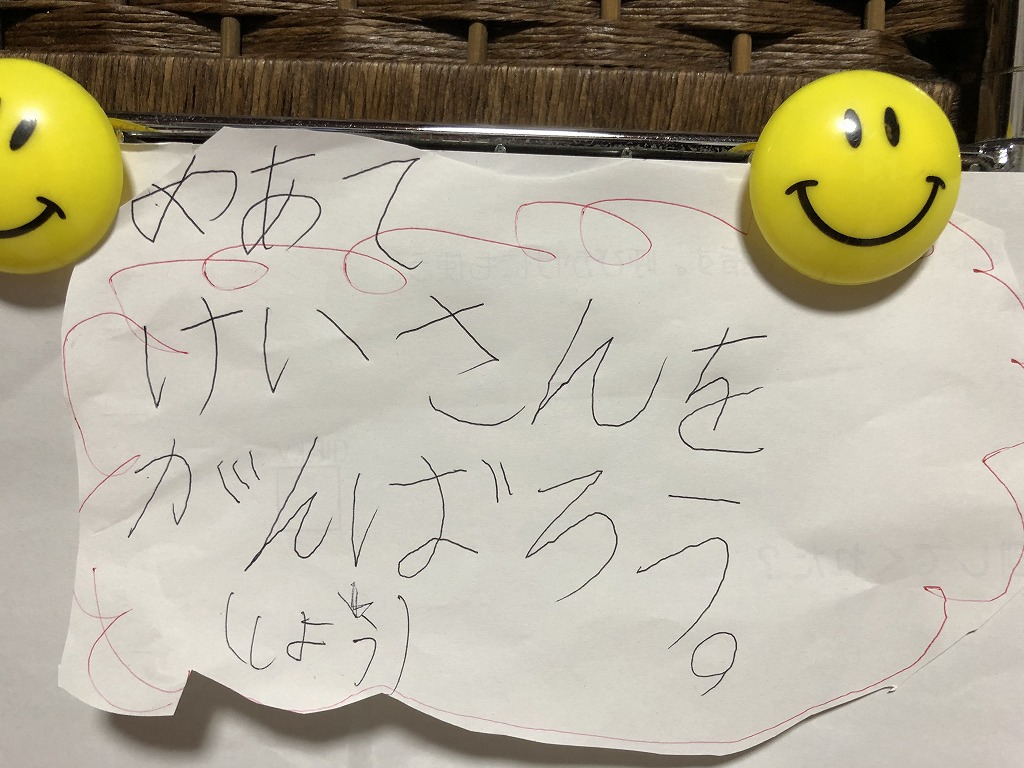 めあて
けいさんを
がんばろう。
(しよう)